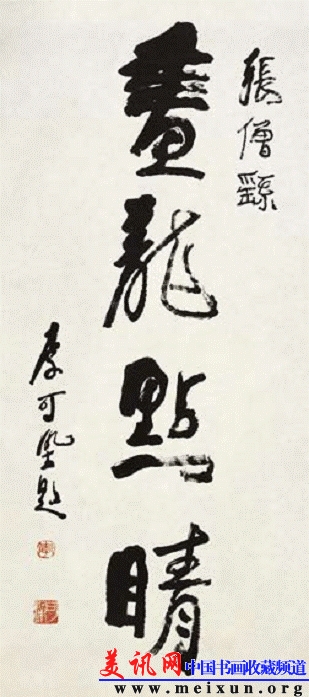 張僧繇
畫龍點睛
李可染題
美讯网 中国书画收藏频道
www.meixun.org